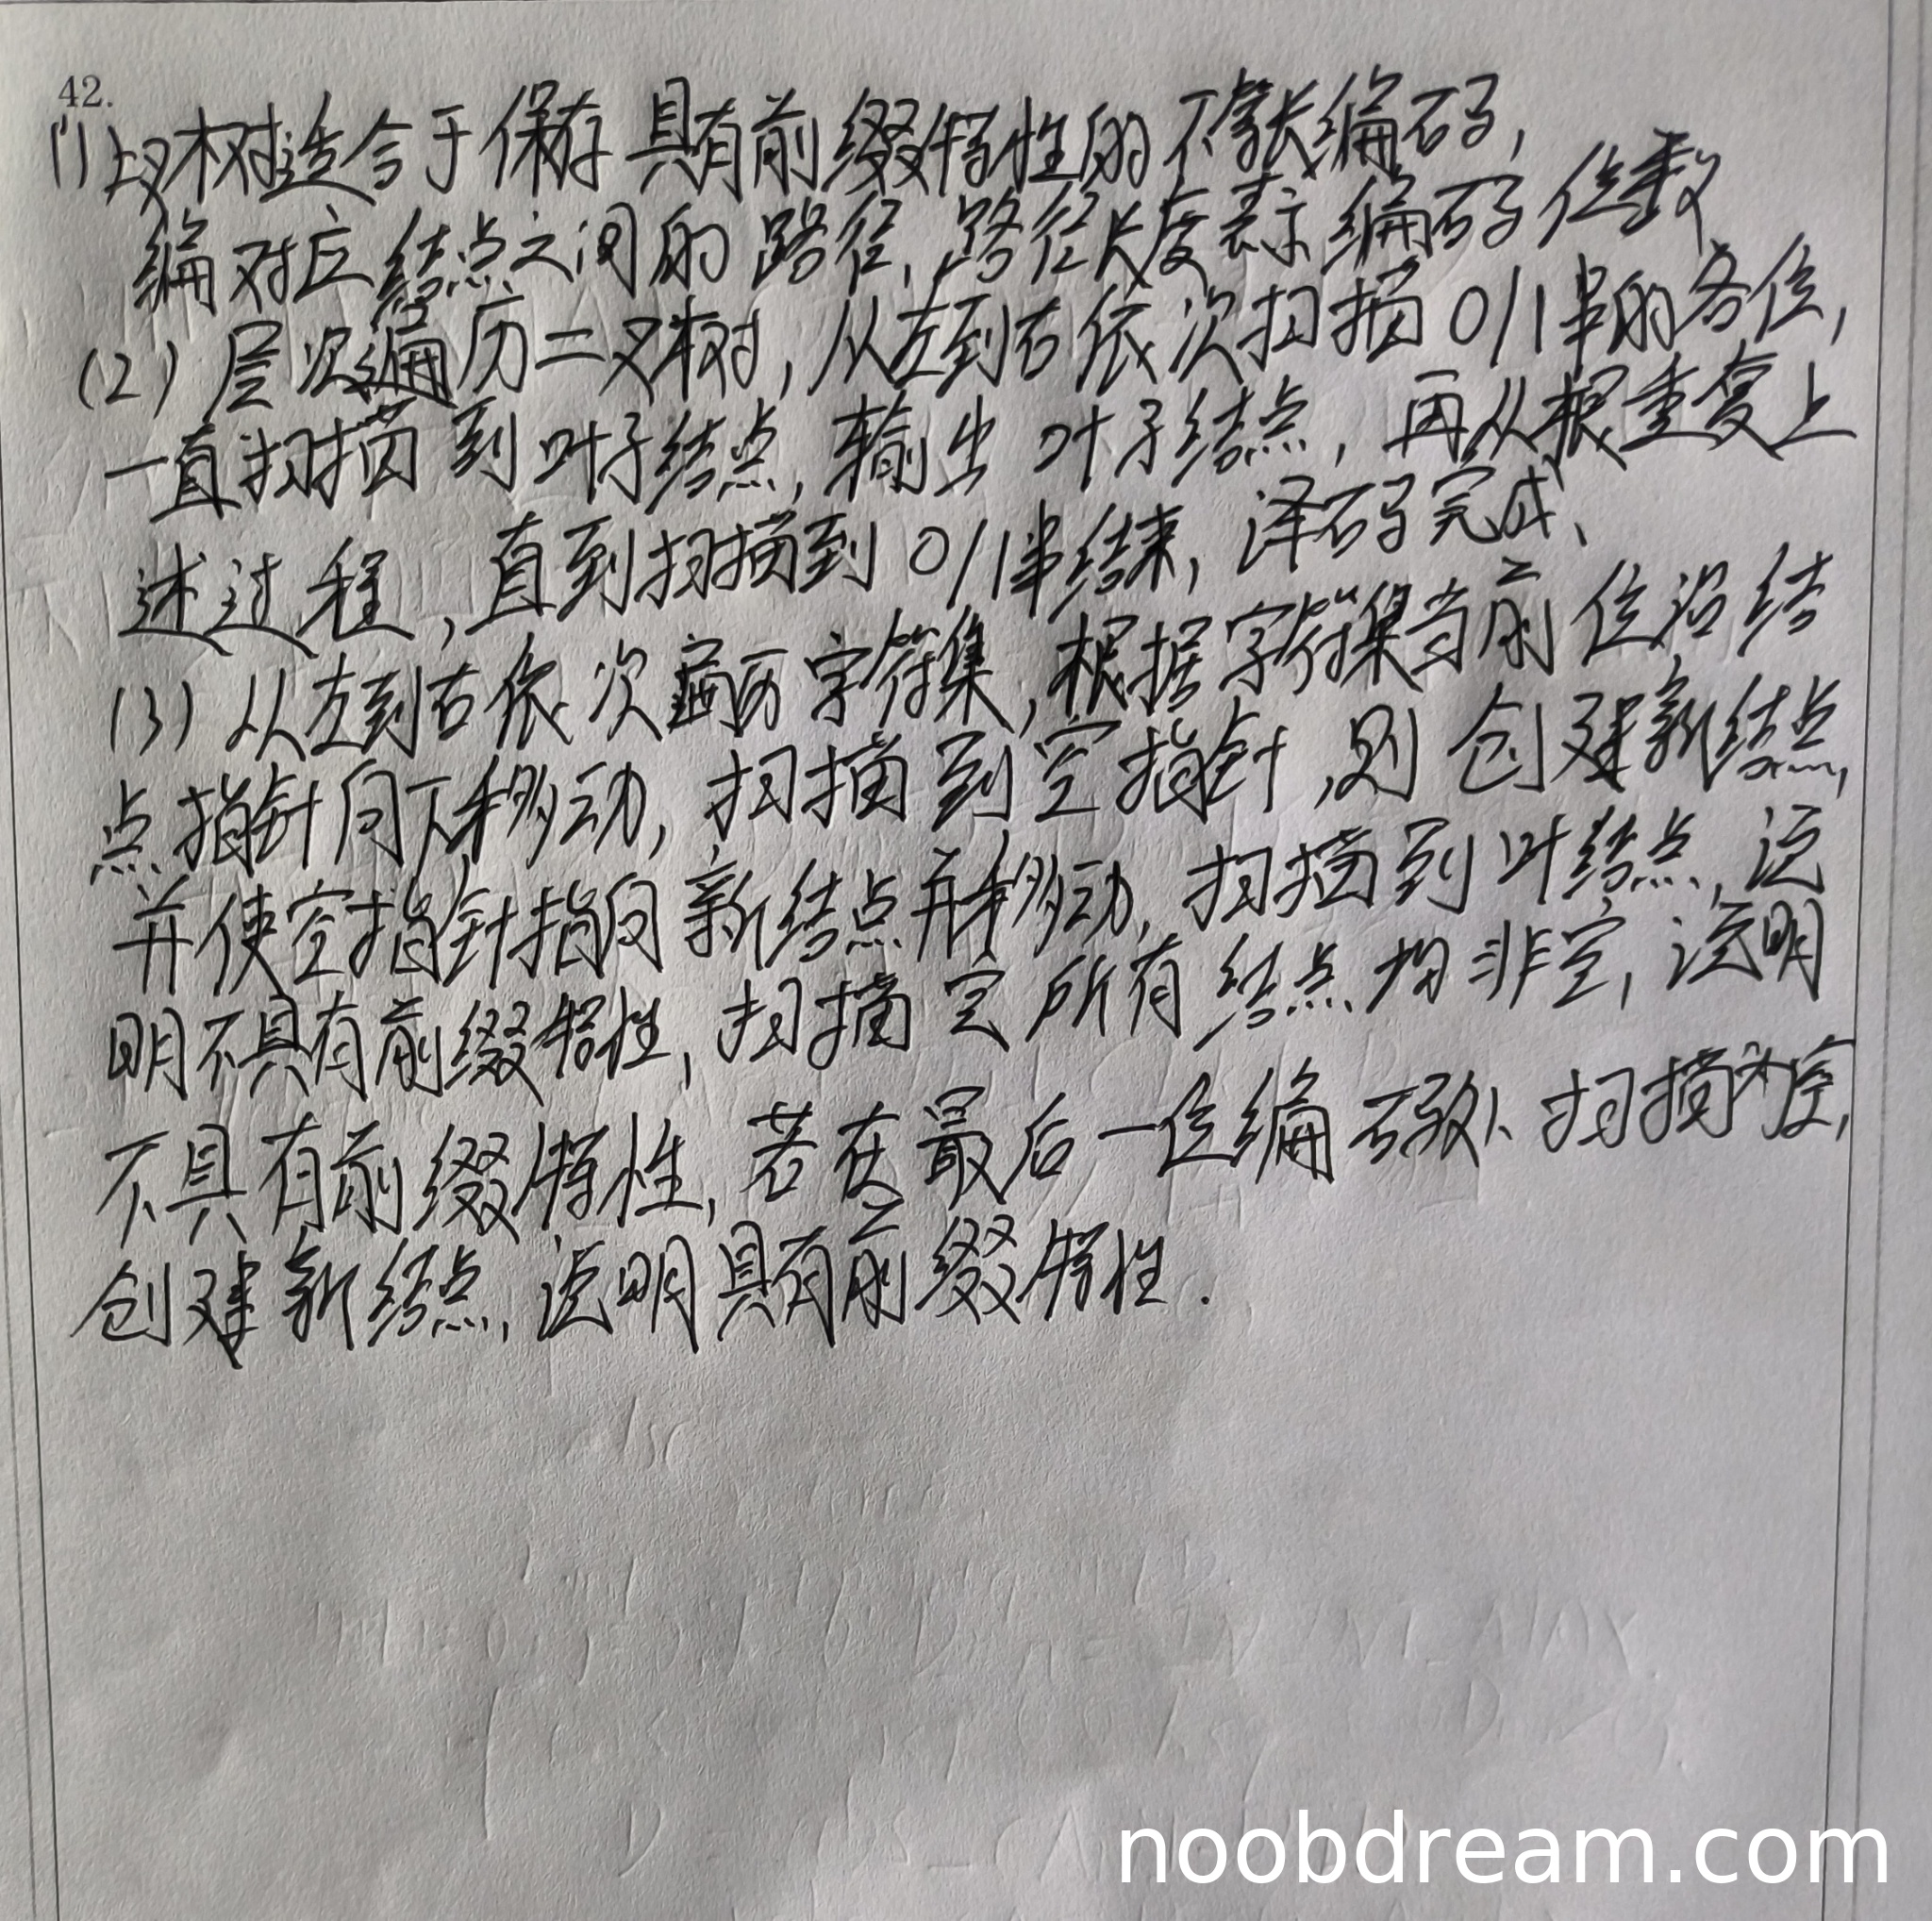 42.
(1) 二叉树适合于保存具有前缀特性的不等长编码,
编对应结点之间的路径,路径长度表示编码位数
(2) 层次遍历二叉树,从左到右依次扫描0/1串的各位,
一直扫描到叶子结点,输出叶子结点,再从根重复上
述过程,直到扫描到0/1串结束,译码完成、
(3) 从左到右依次遍历字符集,根据字符集当前位沿结
点指针向下移动,扫描到空指针,则创建新结点,
并使空指针指向新结点并移动,扫描到叶结点,说
明不具有前缀特性,扫描完所有结点均非空,说明
不具有前缀特性,若在最后一位编码 扫描为空,
创建新结点,说明具有前缀特性.
noobdream.com